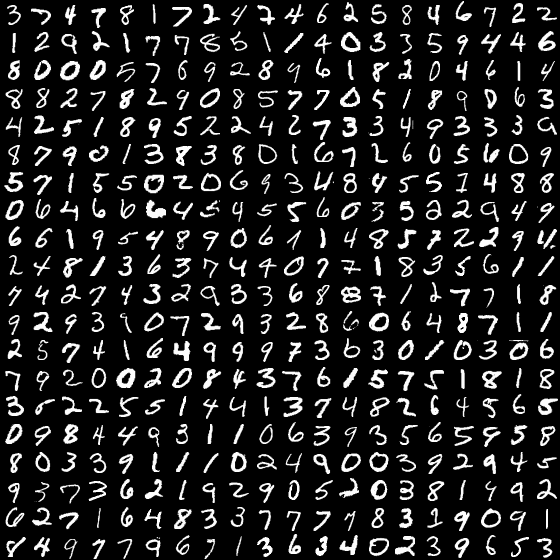 3 7 4 7 8 1 7 2 4 7 4 6 2 5 8 4 6 7 2 2
1 2 9 2 1 7 7 8 5 1 1 4 0 3 3 5 9 4 4 6
8 0 0 0 5 7 6 9 2 8 9 6 1 8 2 0 4 6 1 4
8 8 2 7 8 2 9 0 8 5 7 7 0 5 1 8 9 0 6 3
4 2 5 1 8 9 5 2 2 4 2 7 3 3 4 9 3 3 3 0
8 7 9 0 1 3 8 3 8 0 1 6 7 2 6 0 5 6 0 9
5 7 1 5 5 0 2 0 6 9 3 4 8 4 5 5 7 4 8 8
0 6 4 6 6 6 4 5 4 5 5 6 0 3 5 2 2 9 4 9
6 6 1 9 5 4 8 9 0 6 1 1 4 8 5 7 2 2 9 4
2 4 8 1 3 6 3 7 4 4 0 7 7 1 8 3 5 6 1 1
7 4 2 7 4 3 2 9 3 3 6 8 8 7 1 2 7 7 1 8
9 2 9 3 9 0 7 2 9 3 2 8 6 0 6 4 8 7 1 1
2 5 7 4 1 6 4 9 9 9 7 3 6 3 0 1 0 3 0 6
7 9 2 0 0 2 0 8 4 3 7 6 1 5 7 5 1 8 1 8
3 5 2 2 5 5 1 4 4 1 3 7 4 8 2 6 4 5 6 5
0 9 8 4 4 9 3 1 1 0 6 3 9 3 5 6 5 9 5 8
8 0 3 3 9 1 1 1 0 2 4 9 0 0 3 9 2 9 4 5
9 3 7 3 6 2 1 9 2 9 0 5 2 0 3 8 1 9 9 2
6 2 7 1 6 4 8 3 3 7 7 7 7 8 3 1 9 0 9 1
8 4 9 7 7 9 6 7 1 3 6 3 4 0 2 3 9 6 5 3